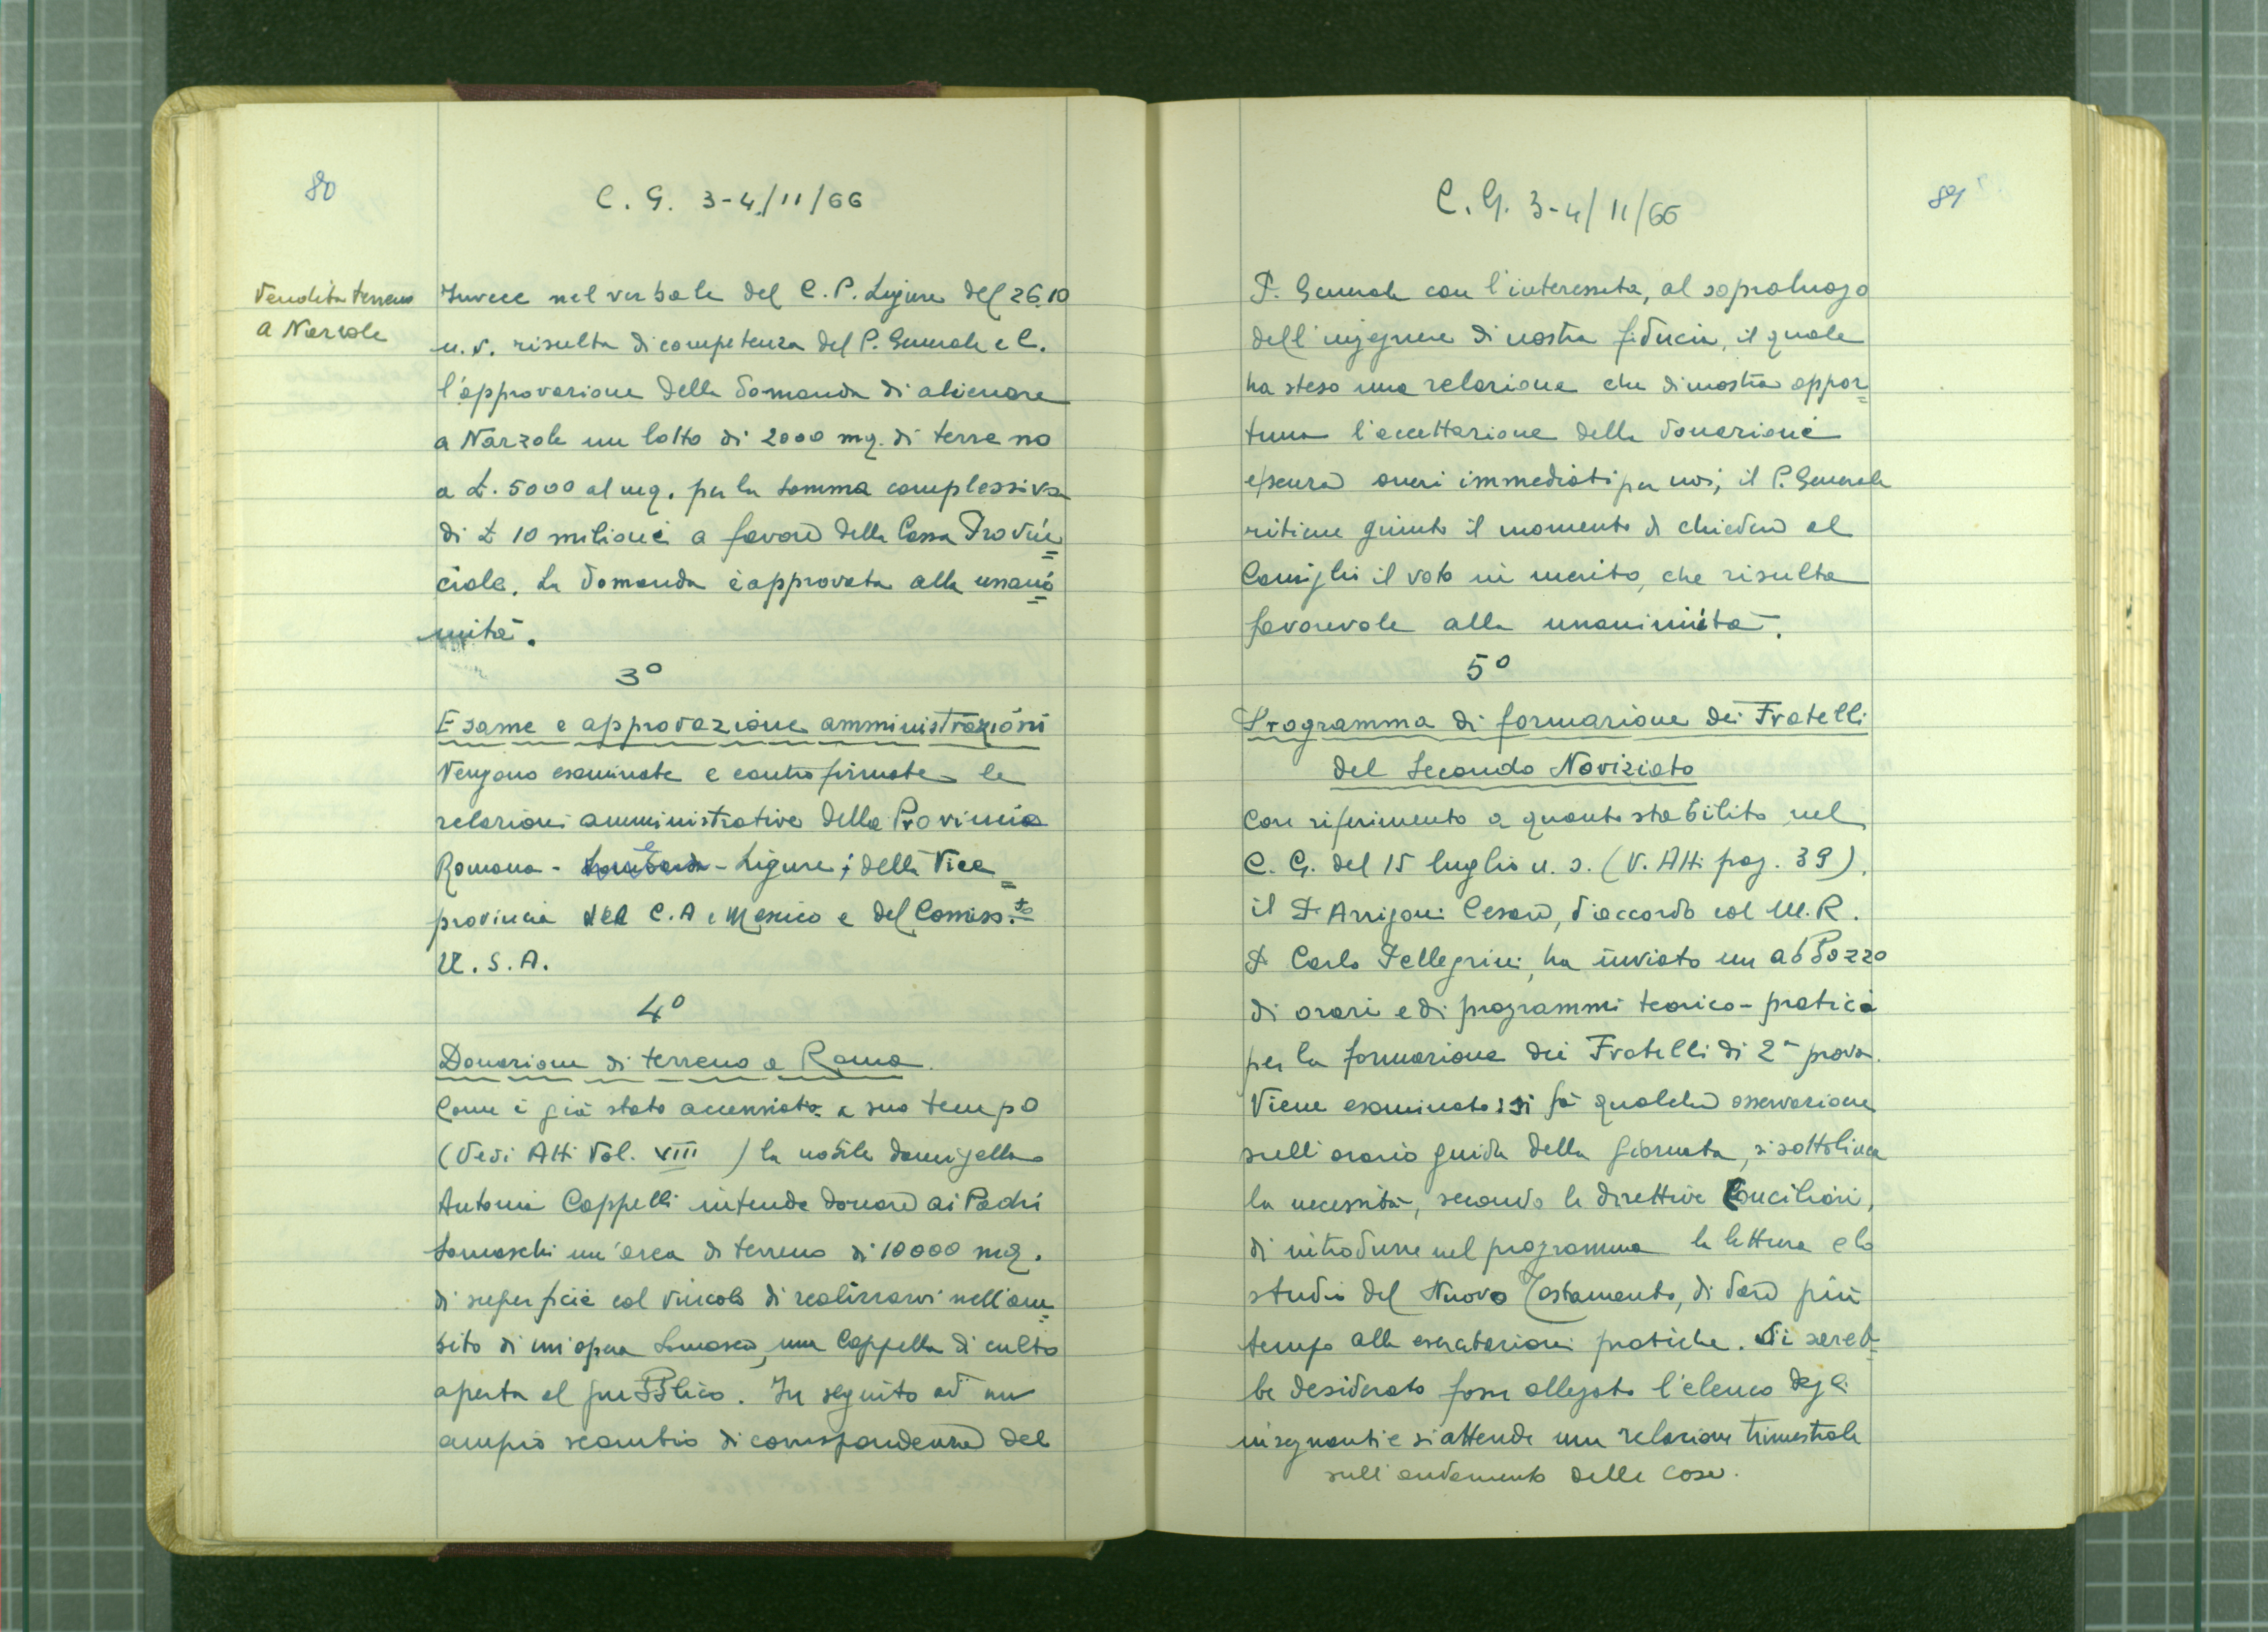 80
C. G. 3-4/11/66
Vendita terreno
a Narzole
Invece nel verbale del C. P. Ligure del 26.10
u.s. risulta di competenza del P. Generale e C.
l'approvazione della domanda di alienare
a Narzole un lotto di 2000 mq. di terreno
a £. 5000 al mq. per la somma complessiva
di £ 10 milioni a favore della Cassa Provin=
ciale. La domanda è approvata alla unani=
mità.
3º
Esame e approvazione amministrazioni
Vengono esaminate e controfirmate le
relazioni amministrative della Provincia
Romana - e - Ligure; della Vice=
provincia del C.A e Messico e del Commiss.to
U.S.A.
4º
Donazione di terreno a Roma.
Come è già stato accennato a suo tempo
(Vedi Atti Vol. VIII ) la nobile damigella
Antonia Cappelli intende donare ai Padri
Somaschi un'area di terreno di 10000 mq.
di superficie col vincolo di realizzarvi nell'am=
bito di un'opera Somasca, una Cappella di culto
aperta al pubblico. In seguito ad un
ampio scambio di corrispondenza del
C. G. 3-4/11/66
81
P. Generale con l'interessata, al sopraluogo
dell'ingegnere di nostra fiducia, il quale
ha steso una relazione che dimostra oppor=
tuna l'accettazione della donazione
e senza oneri immediati per noi; il P. Generale
ritiene giunto il momento di chiedere al
Consiglio il voto in merito, che risulta
favorevole alla unanimità.
5º
Programma di formazione dei Fratelli
del Secondo Noviziato
Con riferimento a quanto stabilito nel
C. G. del 15 luglio u. s. (V. Atti pag. 39),
il P. Arrigoni Cesare, d'accordo col M.R.
P. Carlo Pellegrini, ha inviato un abbozzo
di orari e di programmi teorico-pratici
per la formazione dei Fratelli di 2ª prova.
Viene esaminato: si fa qualche osservazione
sull'orario guida della giornata, si sottolinea
la necessità, secondo le direttive Conciliari,
di introdurre nel programma la lettura e lo
studio del Nuovo Testamento, di dare più
tempo alle esercitazioni pratiche. Si sareb=
be desiderato fosse allegato l'elenco degli
insegnanti e si attende una relazione trimestrale
sull'andamento delle cose.